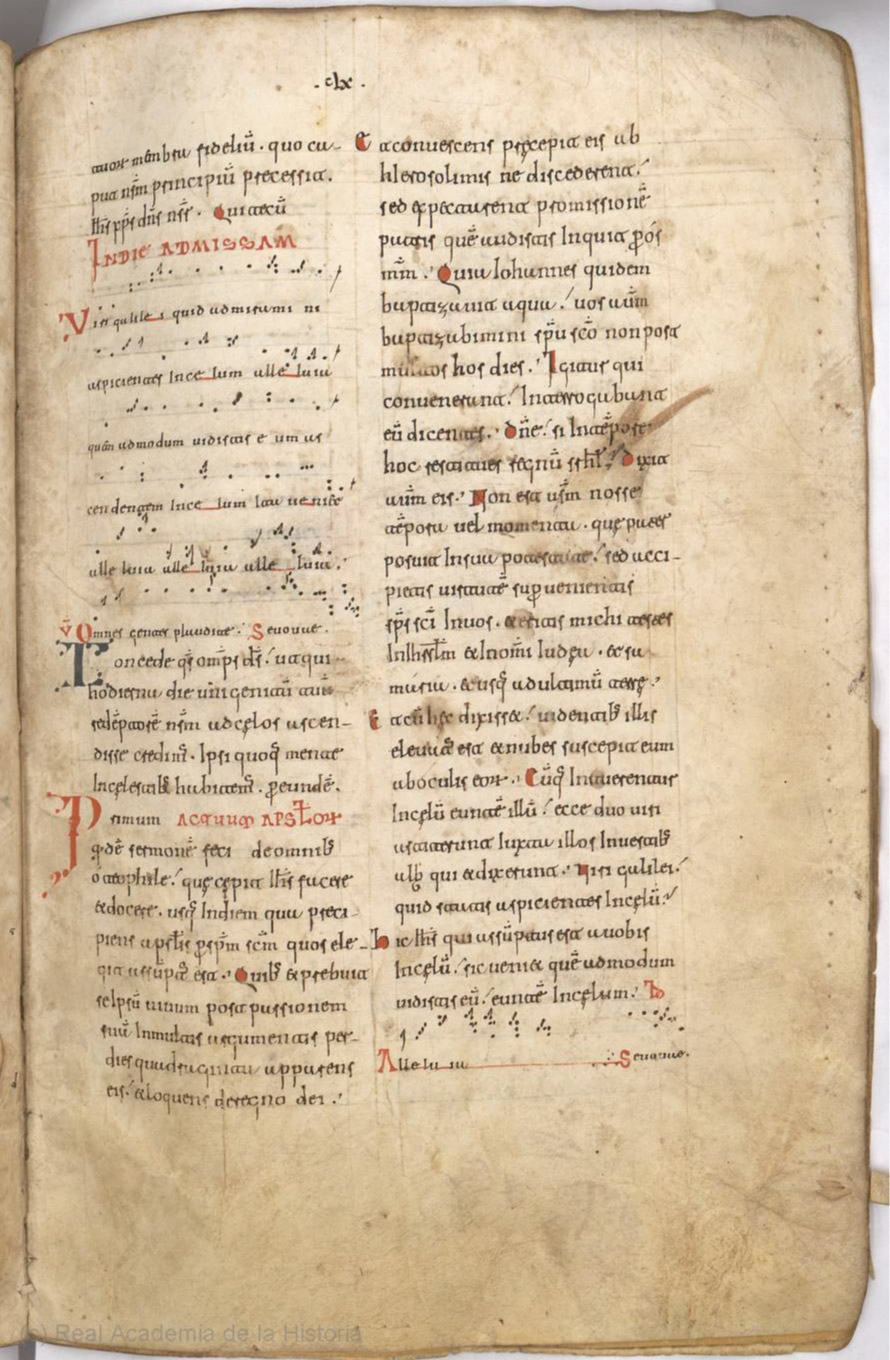 .clx.
auor menbra fideliũ. quo ca-
pud nr̃m principiũ precessit.
Ih̃s xp̃s dñs nr̃s. Qui tecũ
IN DIE AD MISSAM
Viri galilei quid admiramini
aspicientes In celum alleluia
quẽ admodum uidistis eum as
cendentem In celum Ita ueniet
alleluia alleluia alleluia.
V̄ Omnes gentes plaudite. Seuouae.
Concede qs̄ omp̃s ds̃. ut qui
hodierna die unigenitũ tuũ
redẽptorẽ nr̃m ad cęlos ascen-
disse credim̃. Ipsi quoq̃ mente
In cęlestib̃ habitem̃. per eundẽ.
Primum ACTUUM APSTLOR
qdẽ sermonẽ feci de omnib̃
o teophile. quę cepit Ih̃s facere
& docere. usq̃ In diem qua preci-
piens apstl̃is per sp̃m sc̃m quos ele-
git assũptꝰ est. Quib̃ & prebuit
seipsũ uiuum post passionem
suã In multis argumentis per
dies quadraginta apparens
eis. & loquens de regno dei.
Et conuescens precepit eis ab
hIerosolimis ne discederent.
sed expectarent promissionẽ
patris quẽ audistis Inquit per os
mm̃. Quia Iohannes quidem
baptizauit aqua. uos aũm
baptizabimini sp̃u sc̃o non post
multos hos dies. Igitur qui
conuenerunt. Interrogabant
eũ dicentes. Dñe. si In tẽpore
hoc restitues regnũ isrl̃. Dixit
aũm eis. Non est ur̃m nosse
tẽpora uel momenta. quę pater
posuit In sua potestate. sed acci-
pietis uirtutẽ superuenientis
sp̃s sc̃i In uos. & eritis michi testes
In Ihrl̃m & In omĩ Iudęa. & sa
maria. & usq̃ ad ultimũ terrę.
Et cũ hęc dixisset. uidentib̃ illis
eleuatꝰ est & nubes suscepit eum
ab oculis eorꝝ. Cũq̃ Intuerentur
In cęlũ euntẽ illũ. ecce duo uiri
astiterunt Iuxta illos In uestib̃
alb̃ qui & dixerunt. Uiri galilei.
quid statis aspicientes In cęlũ.
hic Ih̃s qui assũptus est a uobis
In cęlũ. sic ueniet quẽ admodum
uidistis eũ. euntẽ In cęlum.
Alleluia Seuouae.
(c) Real Academia de la Historia